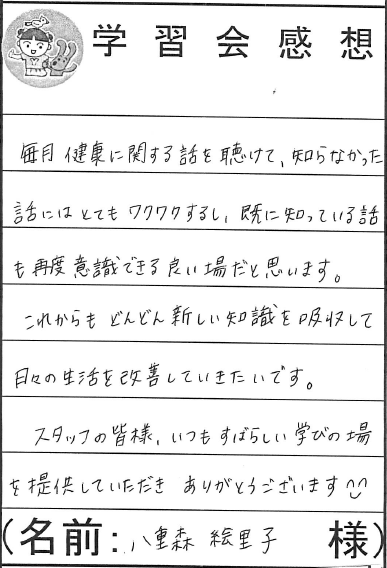 学習会感想
毎月健康に関する話を聴けて、知らなかった
話にはとてもワクワクするし、既に知っている話
も再度意識できる良い場だと思います。
これからもどんどん新しい知識を吸収して
日々の生活を改善していきたいです。
スタッフの皆様、いつもすばらしい学びの場
を提供していただき ありがとうございます^^
(名前: 八重森 絵里子 様)